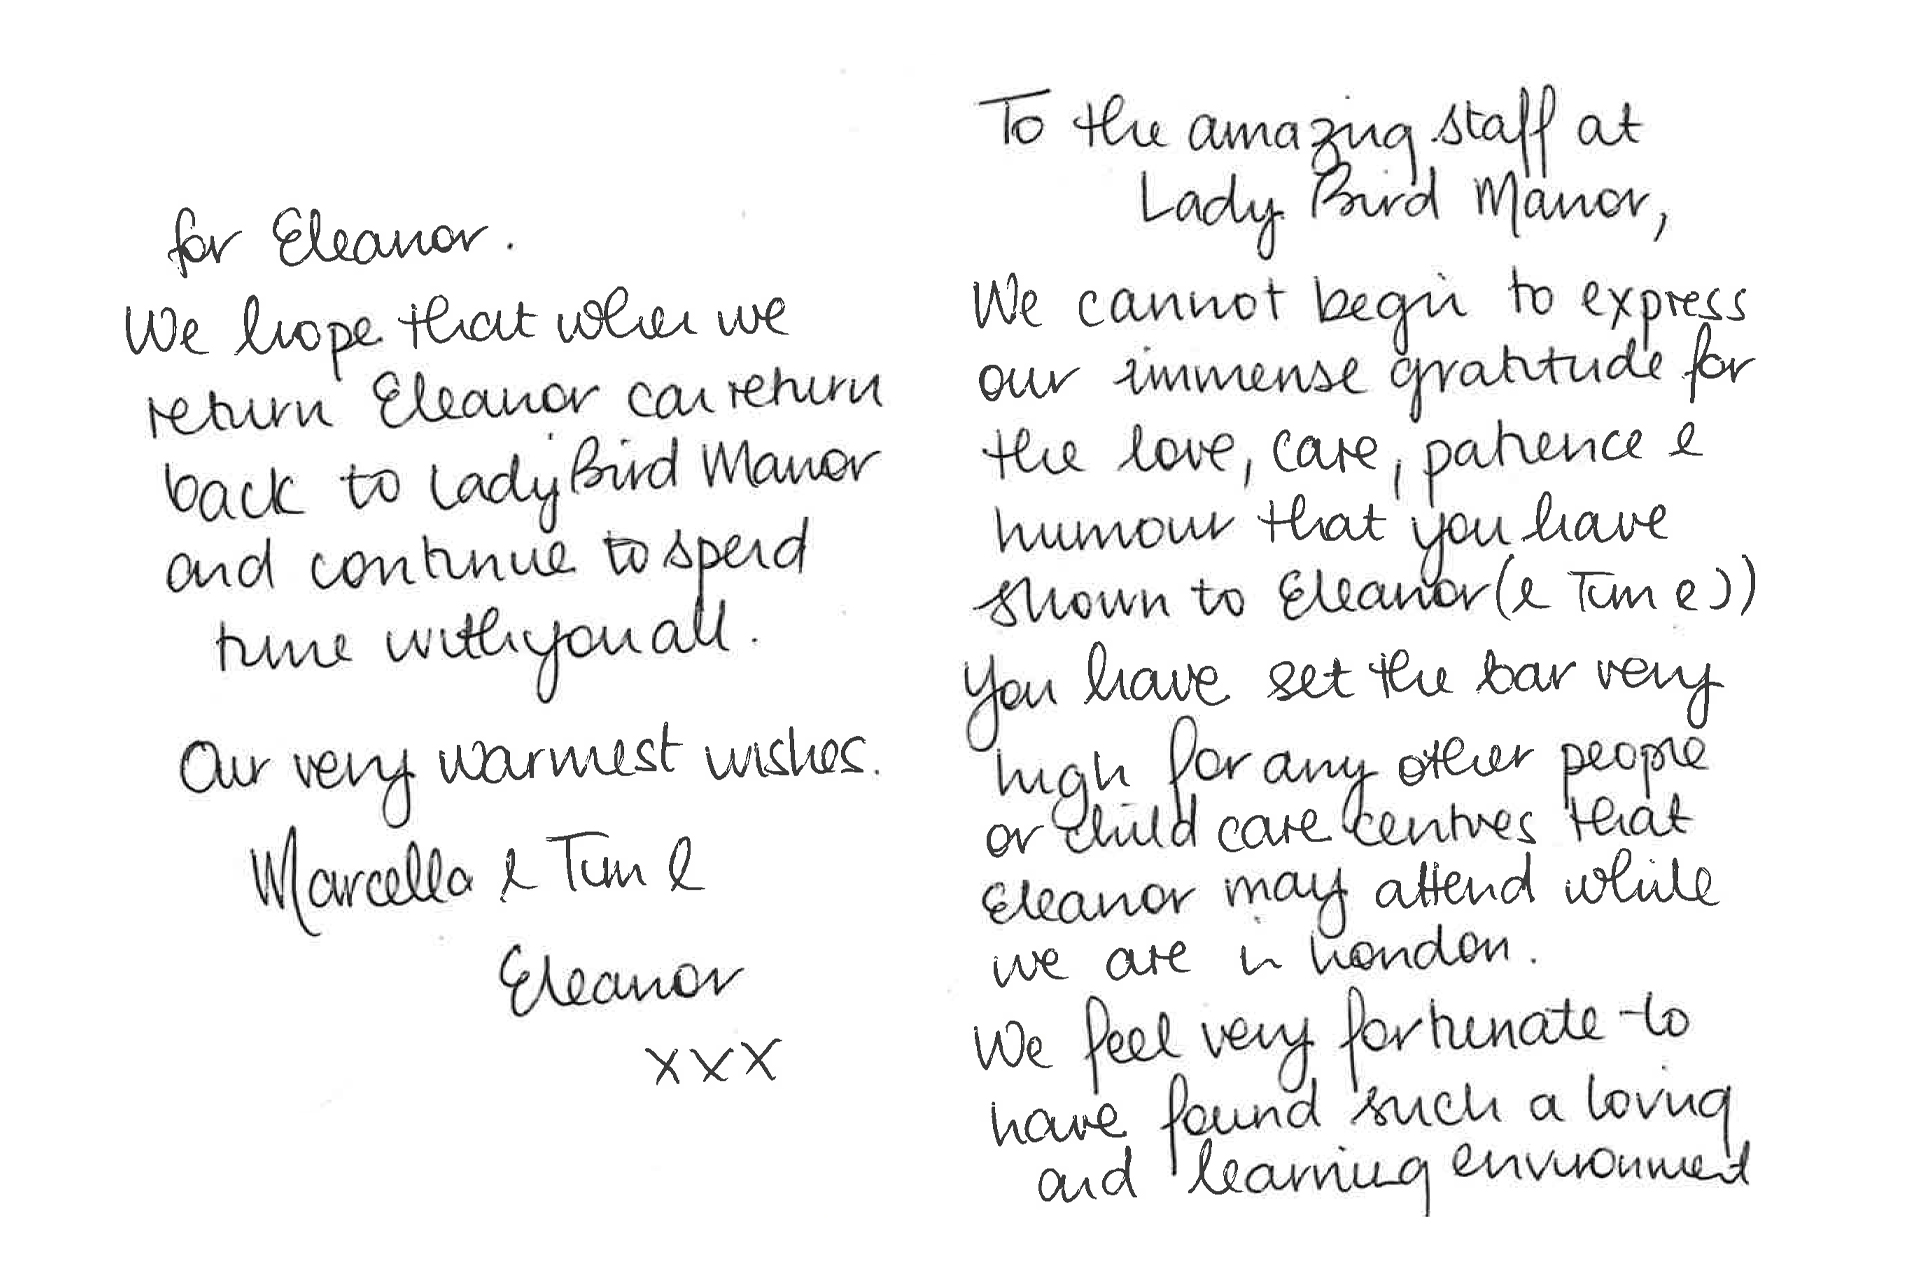 To the amazing staff at
Lady Bird Manor,
We cannot begin to express
our immense gratitude for
the love, care, patience &
humour that you have
shown to Eleanor (& Tim & I)
You have set the bar very
high for any other people
or child care centres that
Eleanor may attend while
we are in London.
We feel very fortunate to
have found such a loving
and learning environment
for Eleanor.
We hope that when we
return Eleanor can return
back to Lady Bird Manor
and continue to spend
time with you all.
Our very warmest wishes.
Marcella & Tim &
Eleanor
xxx